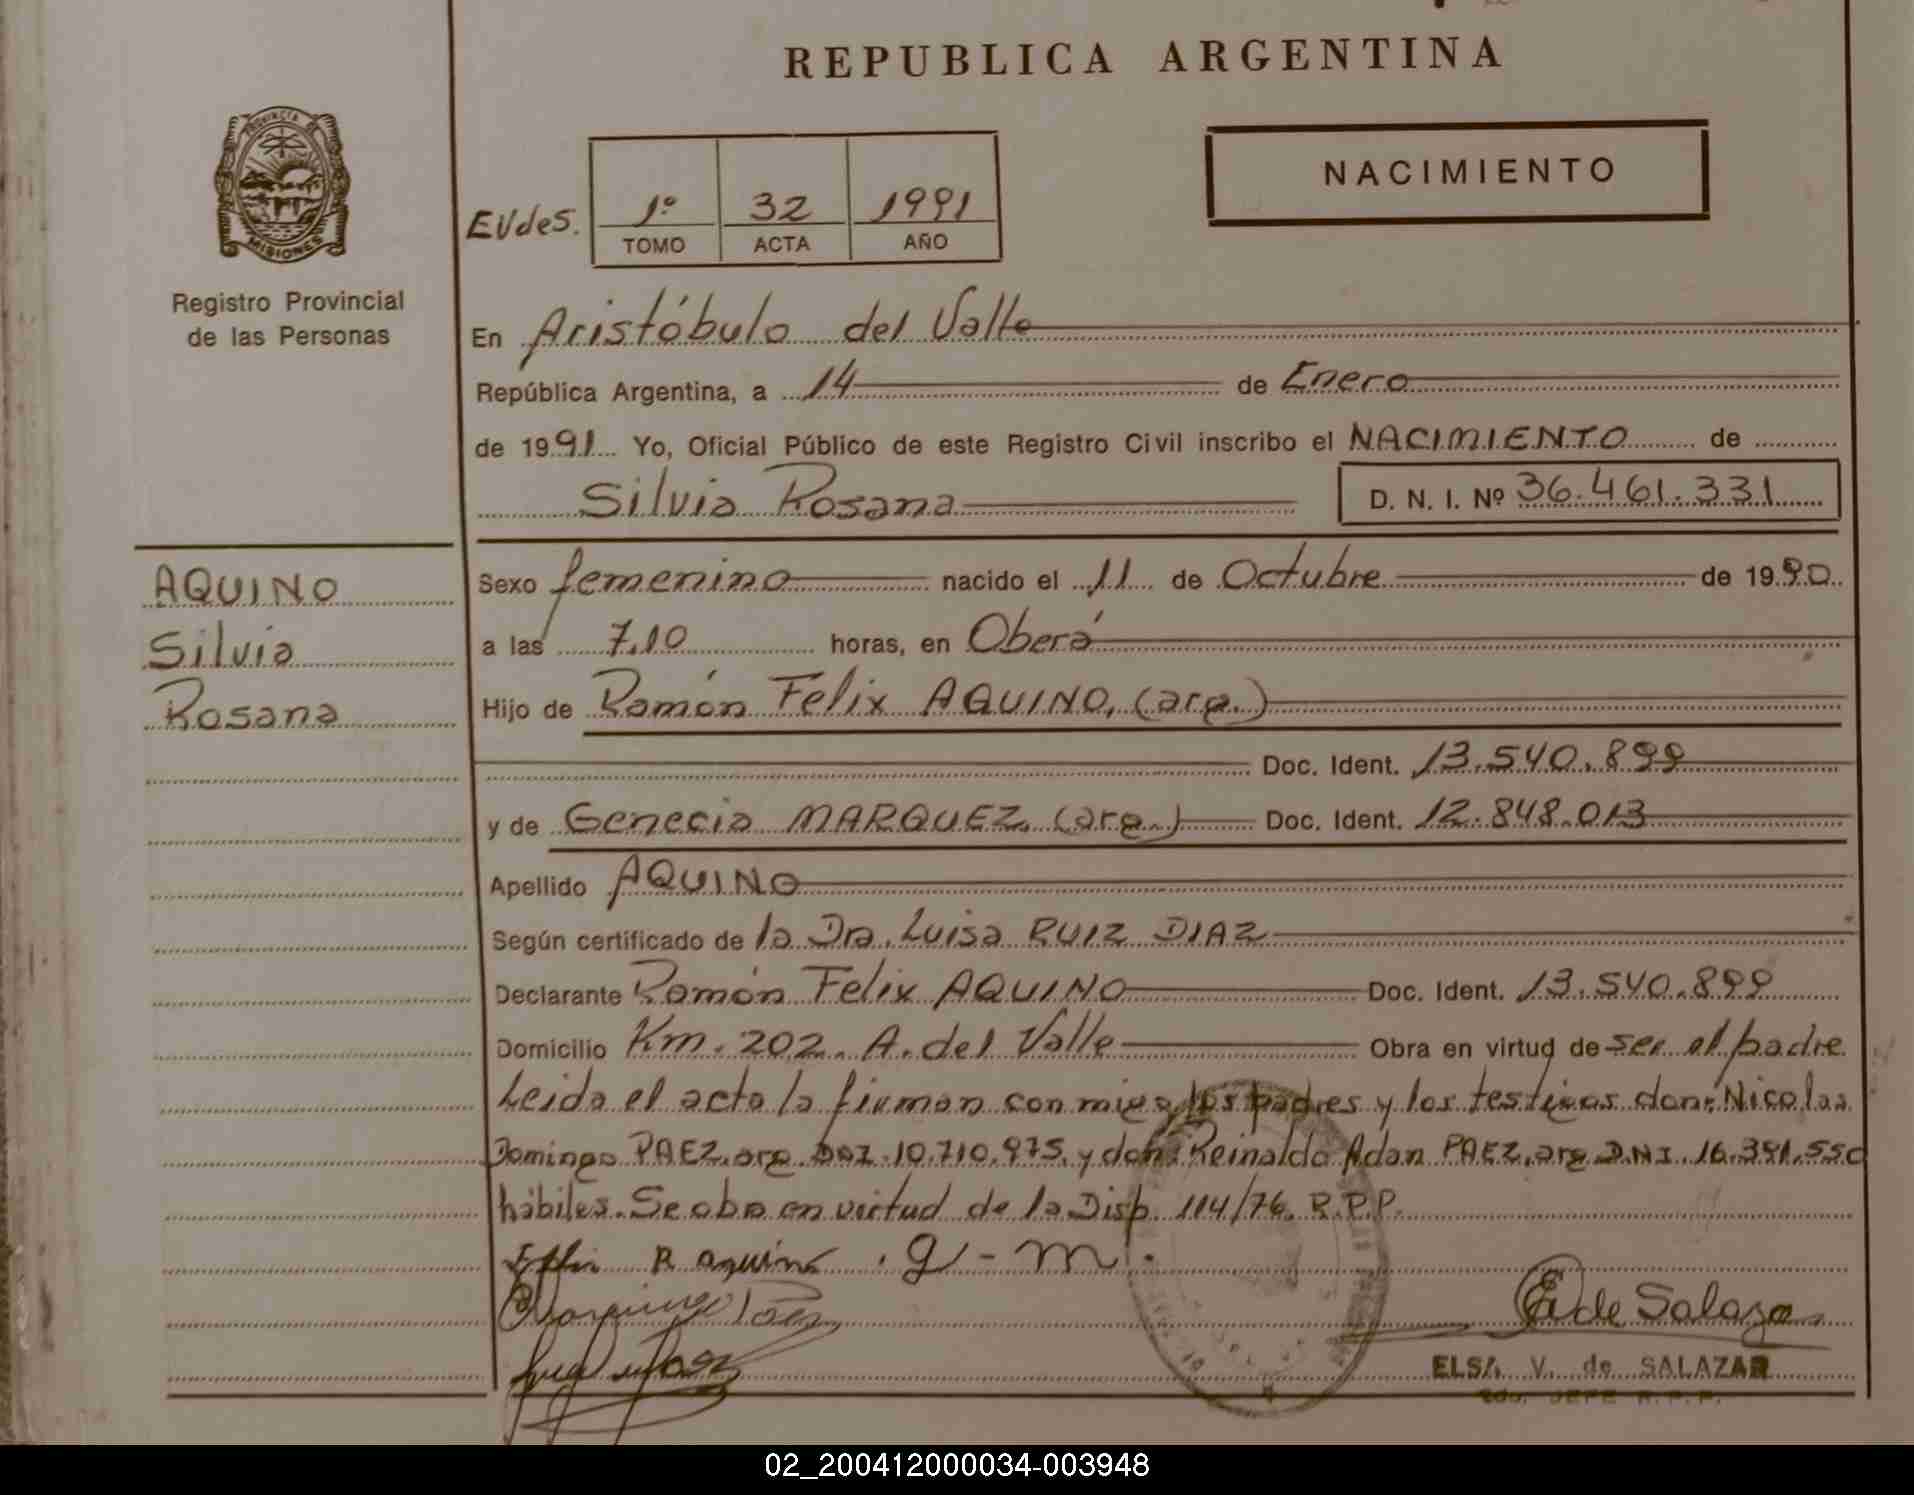 REPUBLICA ARGENTINA
PROVINCIA DE
MISIONES
Registro Provincial
de las Personas
NACIMIENTO
1º 32 1991
TOMO ACTA AÑO
En Aristóbulo del Valle
República Argentina, a 14 de Enero
de 1991 Yo, Oficial Público de este Registro Civil inscribo el NACIMIENTO de
Silvia Rosana D. N. I. Nº 36.461.331
AQUINO
Silvia
Rosana
Sexo femenino nacido el 11 de Octubre de 1990
a las 7,10 horas, en Oberá
Hijo de Ramón Felix AQUINO, (arg.)
Doc. Ident. 13.540.899
y de Genecia MARQUEZ, (arg.) Doc. Ident. 12.848.013
Apellido AQUINO
Según certificado de la Dra. Luisa RUIZ DIAZ
Declarante Ramón Felix AQUINO Doc. Ident. 13.540.899
Domicilio Km. 202. A. del Valle Obra en virtud de ser el padre
Leida el acta la firman con migo, los padres y los testigos don: Nicolas
Domingo PAEZ, arg. DNI. 10.710.975, y don: Reinaldo Adan PAEZ, arg. DNI. 16.391.550
hábiles. Se obra en virtud de la Disp. 114/76. R.P.P.
R aquino . g - m .
E de Salazar
ELSA V. de SALAZAR
JEFE R.P.P.
02_200412000034-003948